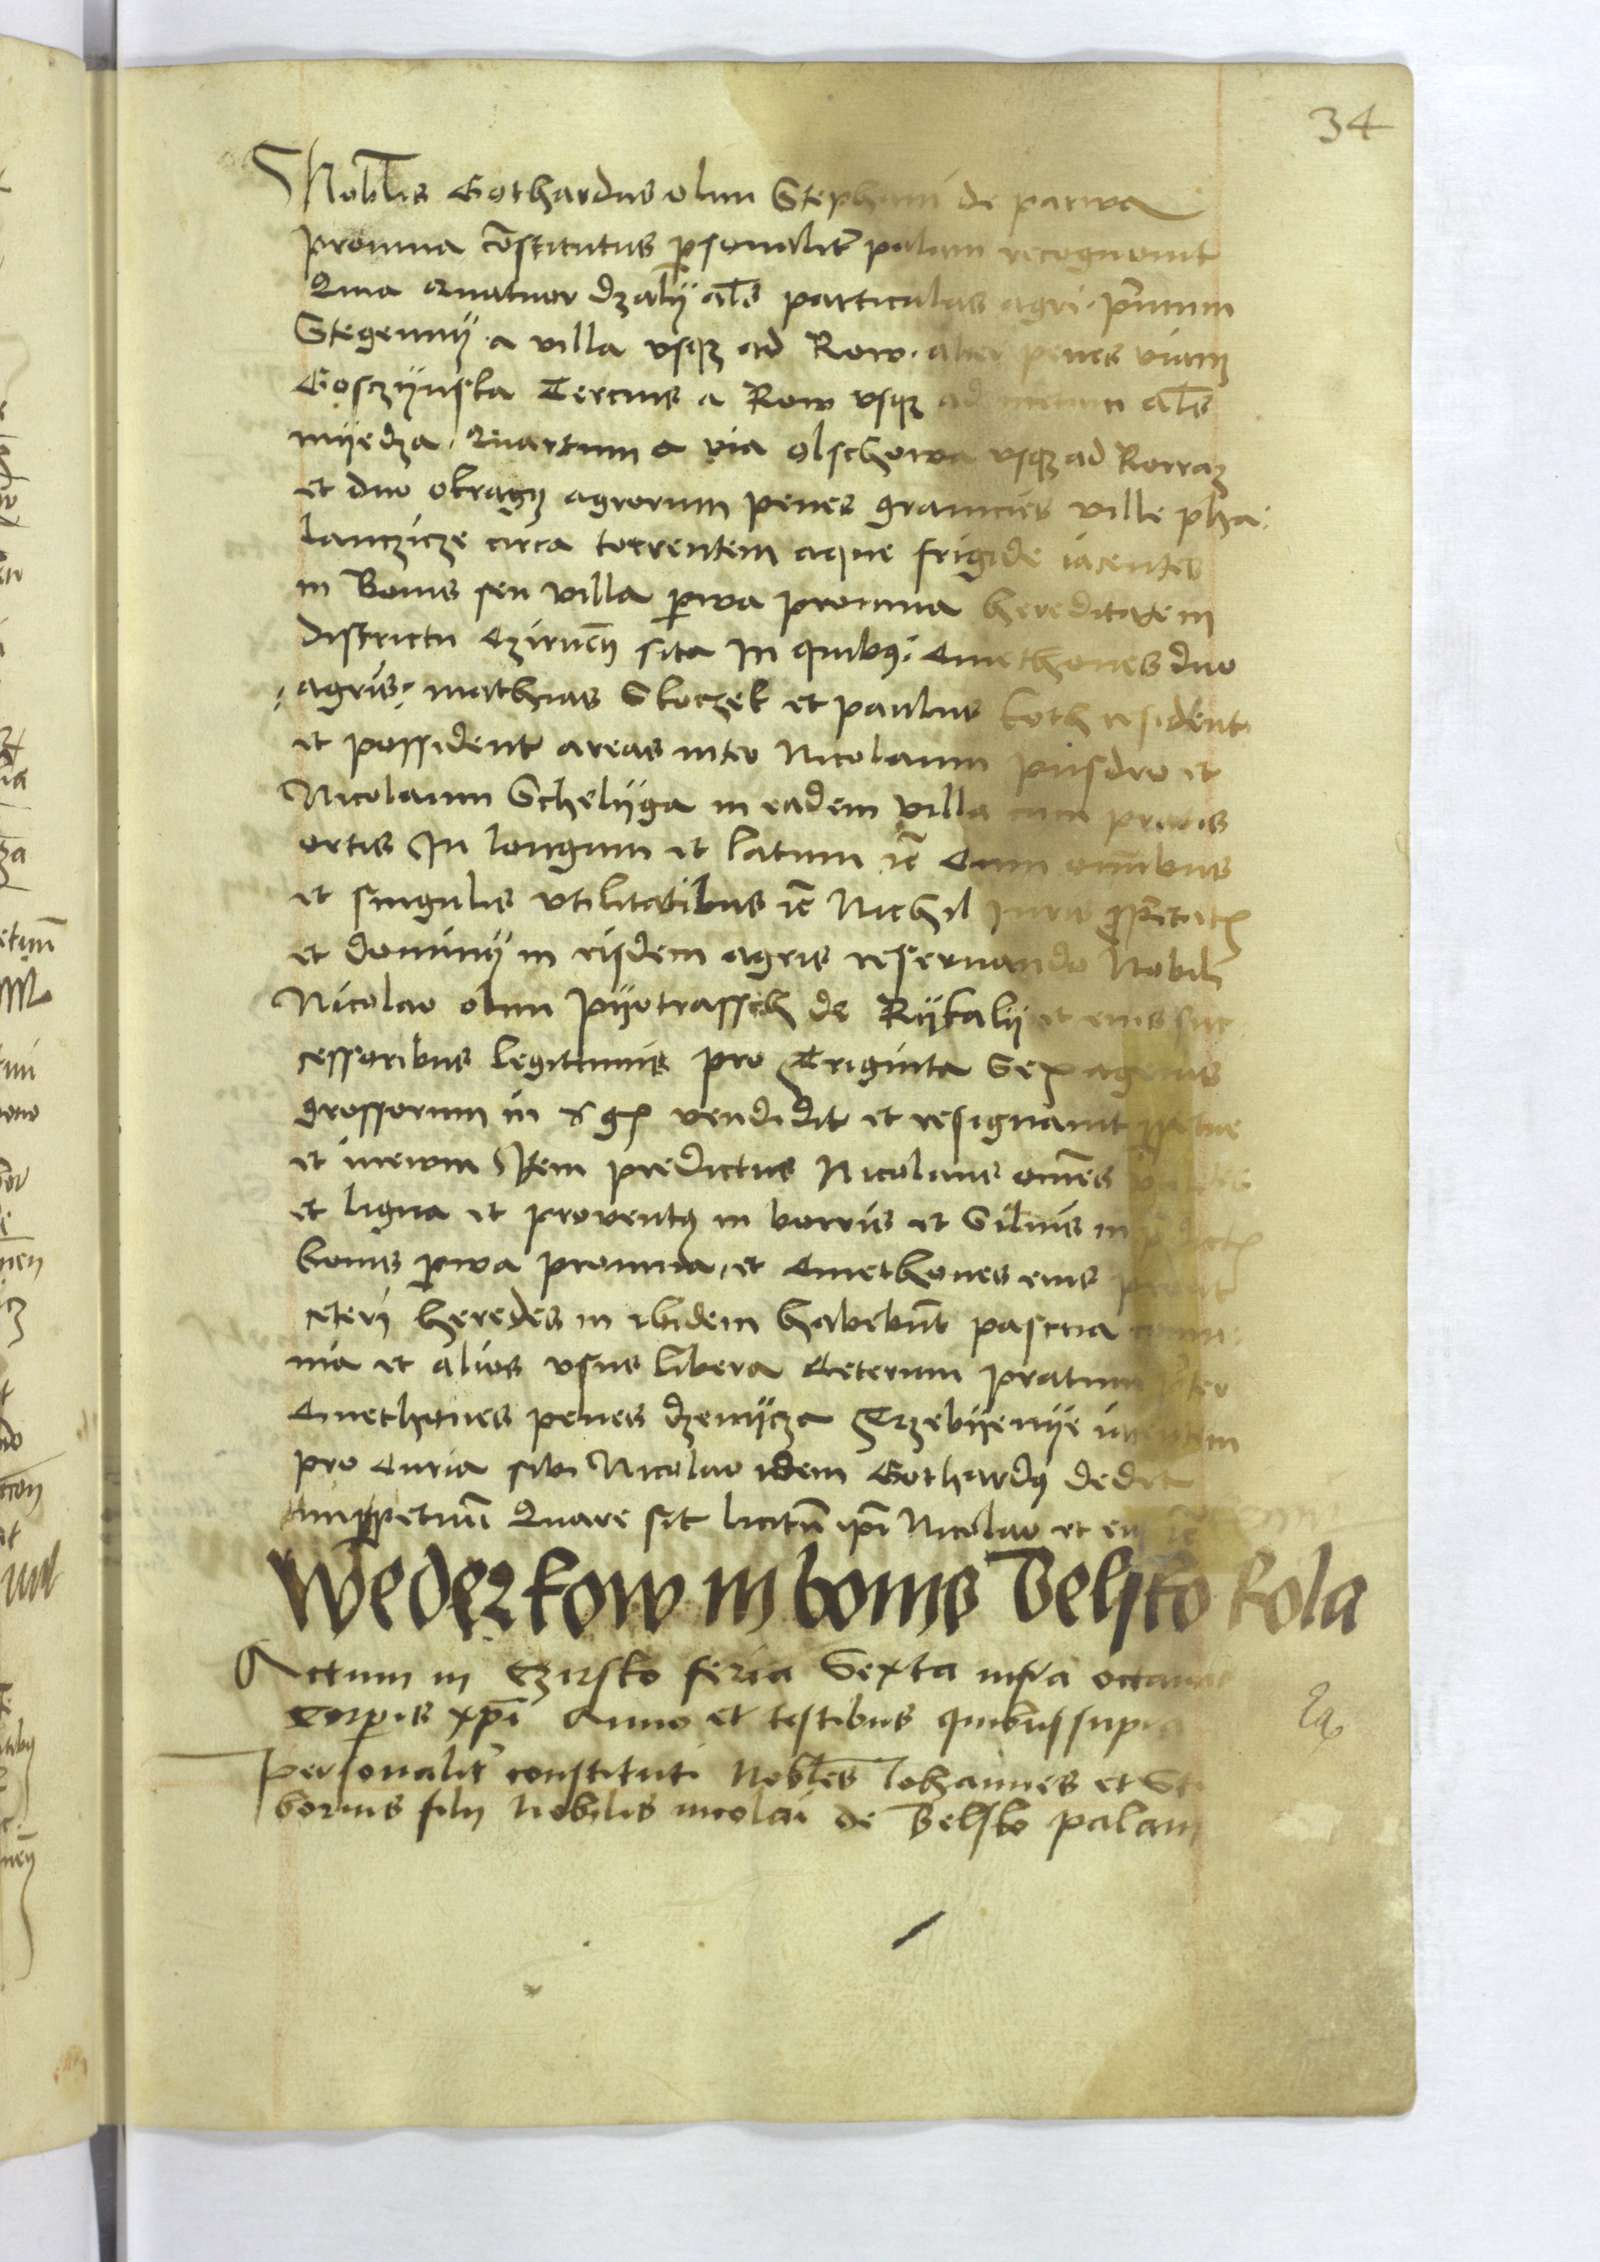 34
Nobilis Gothardus olim Stephani de parwa
promna constitutus personaliter palam recognouit
Quia Quatuor dzaly als particulas agri primum
Stegenny a villa vsque ad Row alter penes viam
Gosczynska Tercius a Row vsque ad als
myedza Quartum a via Olschowa vsque ad
et duo okragy agrorum penes granicies ville pha
lanczicze circa torrentem aque frigide iacentes
in Bonis seu villa parwa promna hereditate in
districtu Czirnen sita In quibus Cmethones duo
agris mathias Skoczek et paulus koth resident
et possident areas inter Nicolaum et
Nicolaum Schelyga in eadem villa cum pratis
ortis In longum et latum etc Cum omnibus
et singulis vtilitatibus etc Nichil Juris proprietatis
et dominy in eisdem agris reseruando Nobili
Nicolao olim Pyotrassch de Rykaly et eius suc
cessoribus legitimis pro Triginta Sexagenis
grossorum in vendidit et resignauit perpetue
et in ewm Item predictus Nicolaus omnes
et ligna et prouentus in borris et Siluis in
bonis parwa promna et Cmethones eius prout
ceteri heredes in ibidem habebunt pascua commu
nia et alios vsus libera Ceterum pratum inter
Cmethones penes dzemycza Trzebyenye
pro Curia sibi Nicolao idem Gothardus dedit
in perpetuum Quare sit licitum ipsi Nicolao et etc
Wederkow in bonis Belsko kola
Actum in Czirsko feria Sexta infra octauas
Corporis xpi Anno et testibus quibus supra
personaliter constituti Nobiles Johannes et Sti
borius filii Nobilis nicolai de Belsko palam